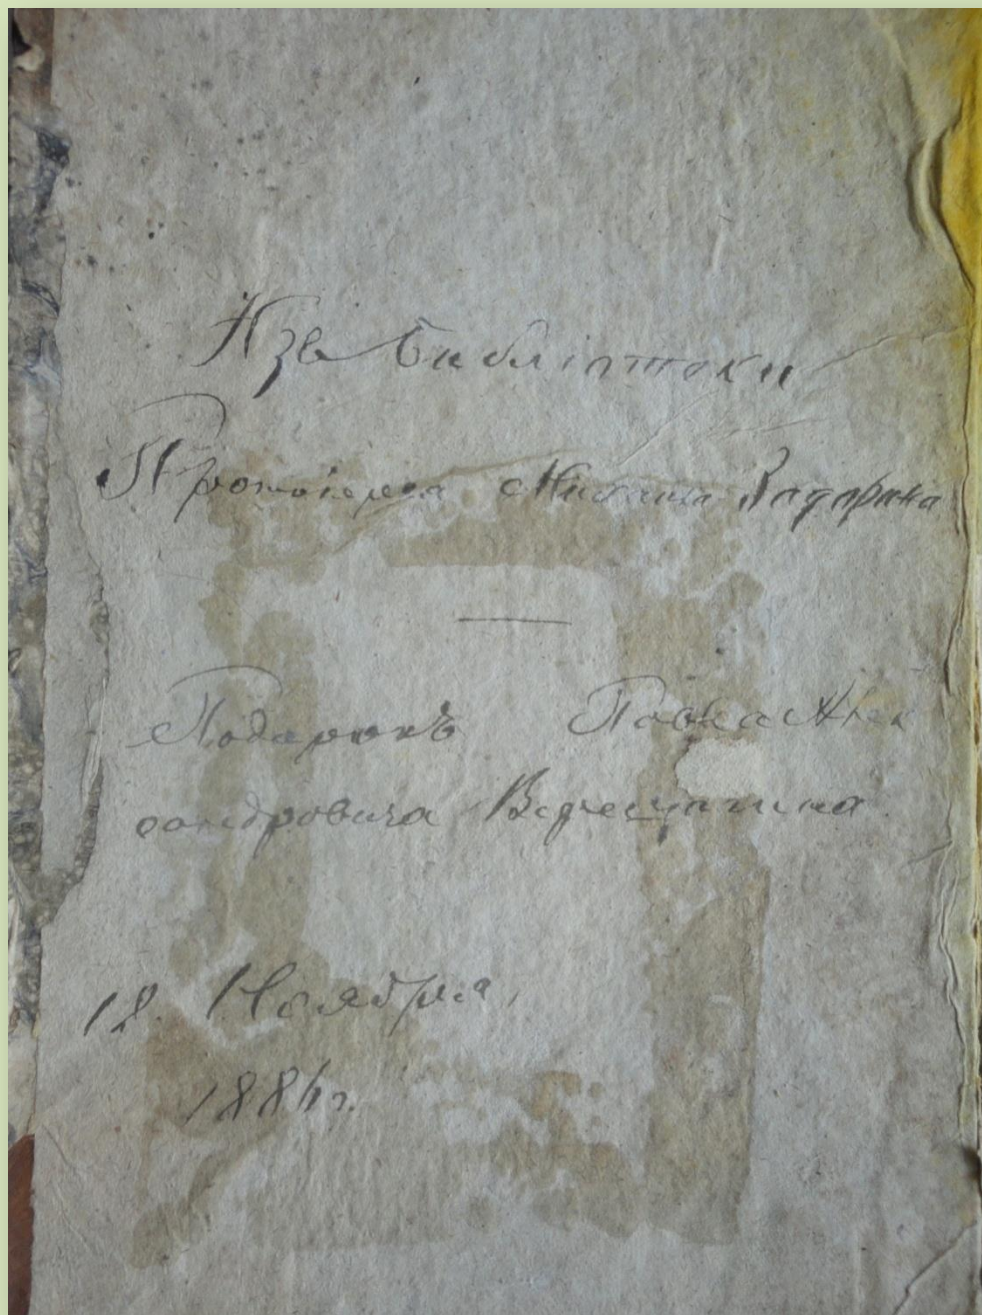 Изъ библіотеки
Протоіерея Михаила
Подарокъ Павла Алек
сандровича Верещагина
18. Ноября
1886 г.